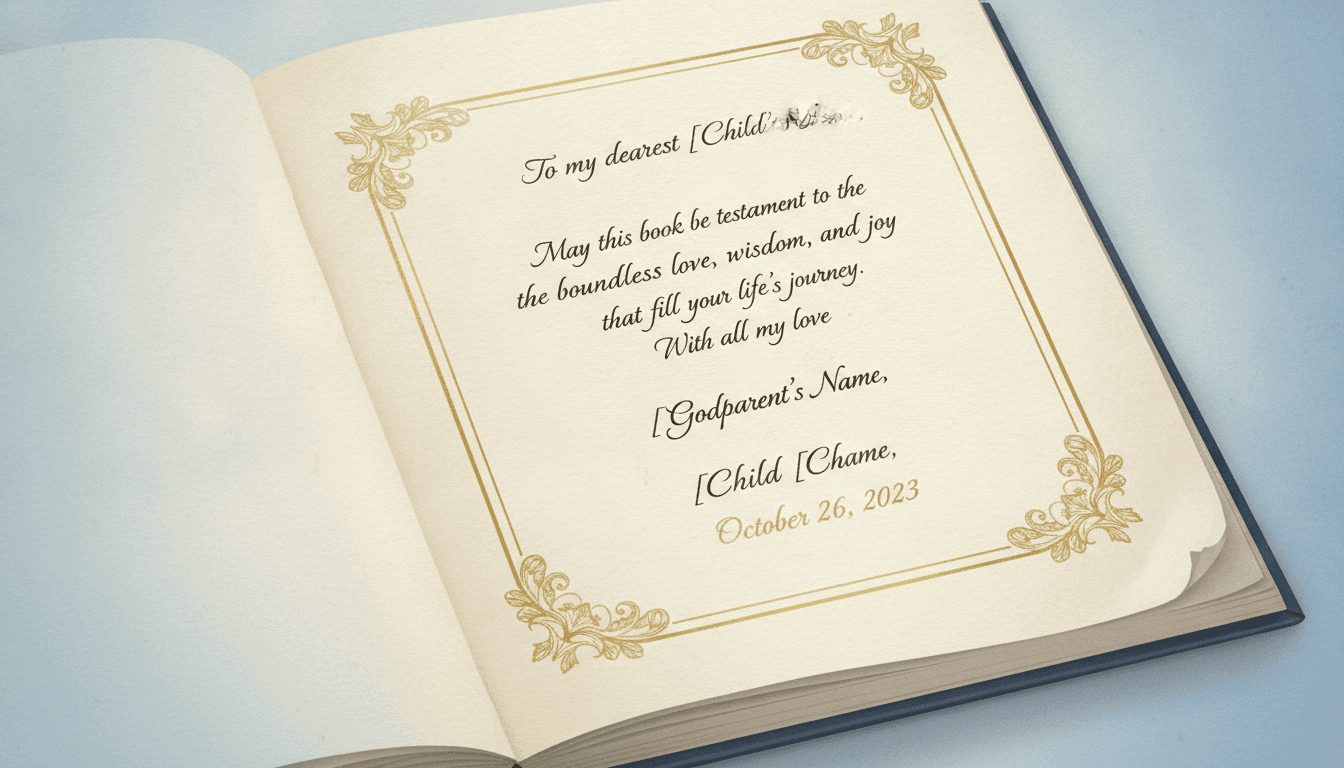 To my dearest [Child's
May this book be testament to the
the boundless love, wisdom, and joy
that fill your life's journey.
With all my love
[Godparent's Name,
[Child [Chame,
October 26, 2023